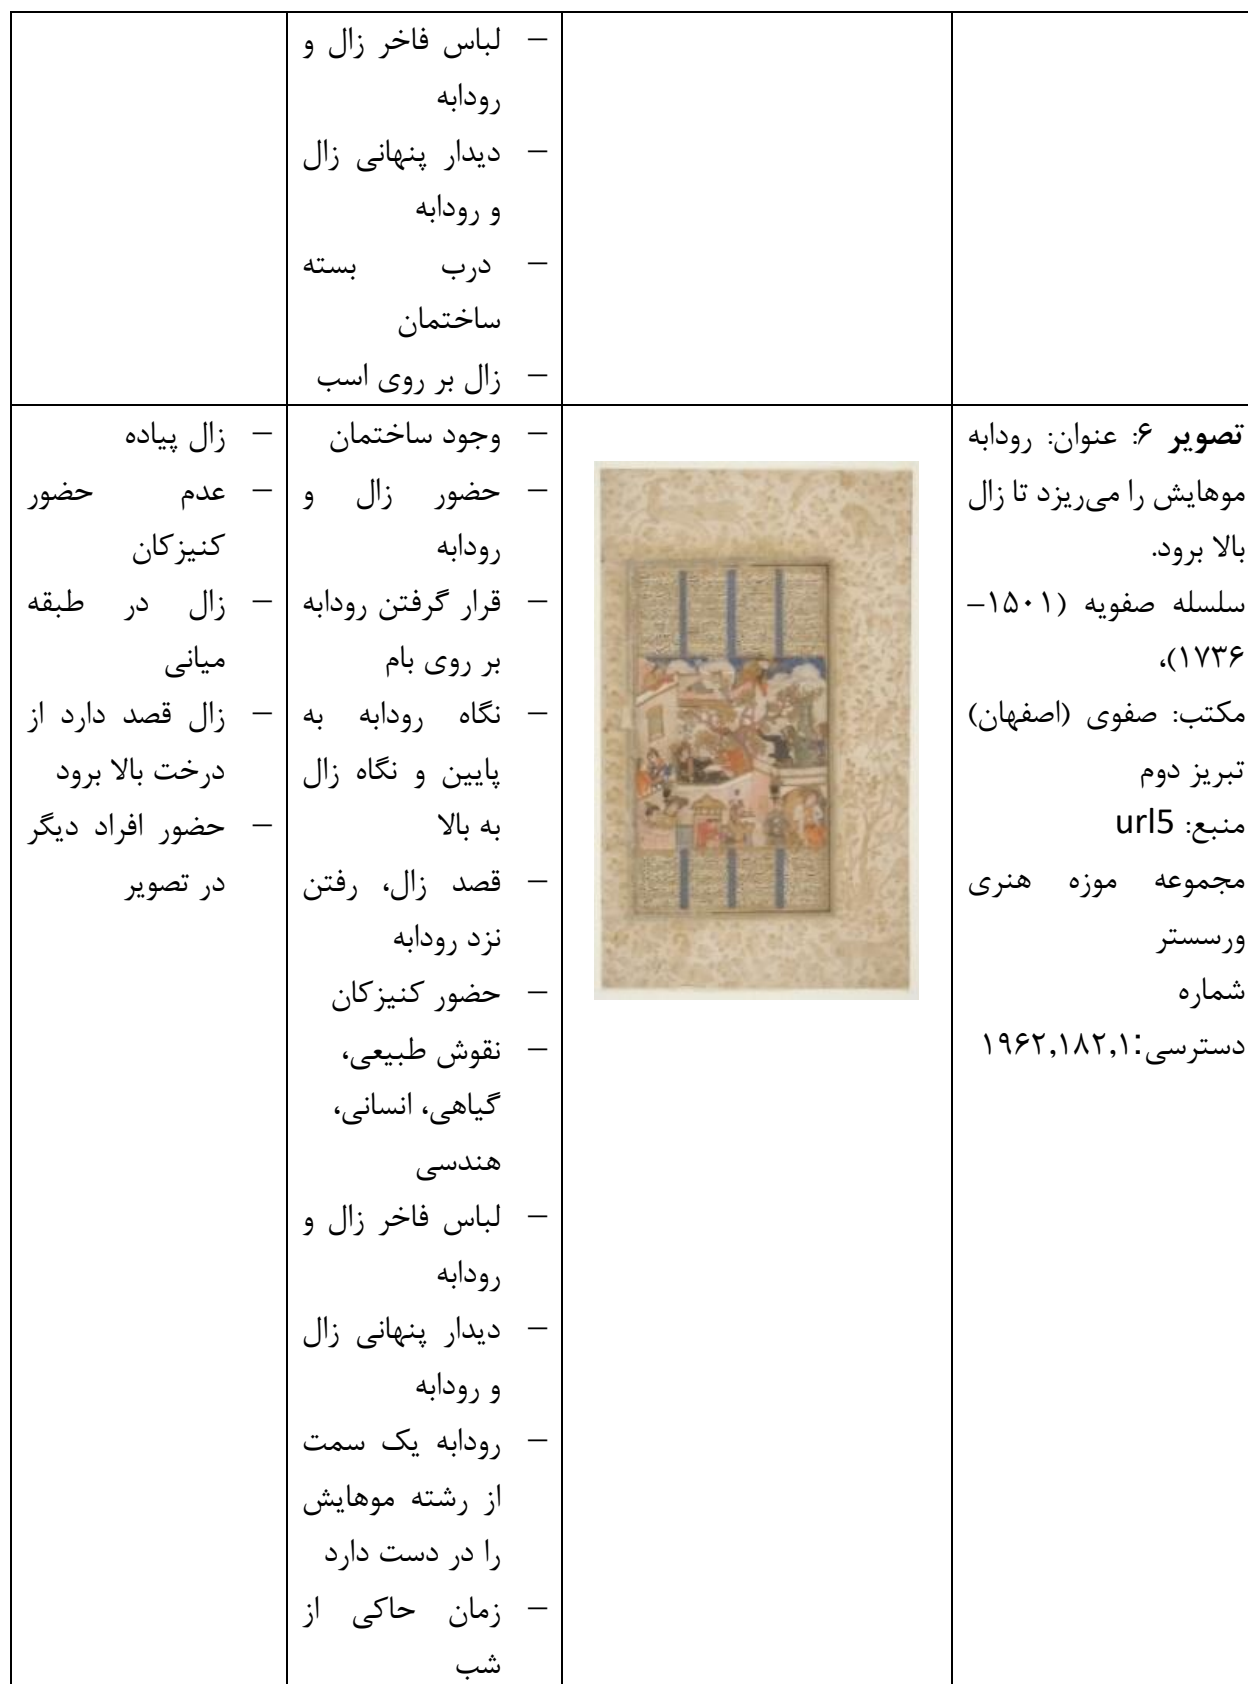 – لباس فاخر زال و
رودابه
– دیدار پنهانی زال
و رودابه
– درب بسته
ساختمان
– زال بر روی اسب
تصویر ۶: عنوان: رودابه
موهایش را می‌ریزد تا زال
بالا برود.
سلسله صفویه (۱۵۰۱–
۱۷۳۶)،
مکتب: صفوی (اصفهان)
تبریز دوم
منبع: url5
مجموعه موزه هنری
ورسستر
شماره
دسترسی:۱۹۶۲,۱۸۲,۱
– وجود ساختمان
– حضور زال و
رودابه
– قرار گرفتن رودابه
بر روی بام
– نگاه رودابه به
پایین و نگاه زال
به بالا
– قصد زال، رفتن
نزد رودابه
– حضور کنیزکان
– نقوش طبیعی،
گیاهی، انسانی،
هندسی
– لباس فاخر زال و
رودابه
– دیدار پنهانی زال
و رودابه
– رودابه یک سمت
از رشته موهایش
را در دست دارد
– زمان حاکی از
شب
– زال پیاده
– عدم حضور
کنیزکان
– زال در طبقه
میانی
– زال قصد دارد از
درخت بالا برود
– حضور افراد دیگر
در تصویر